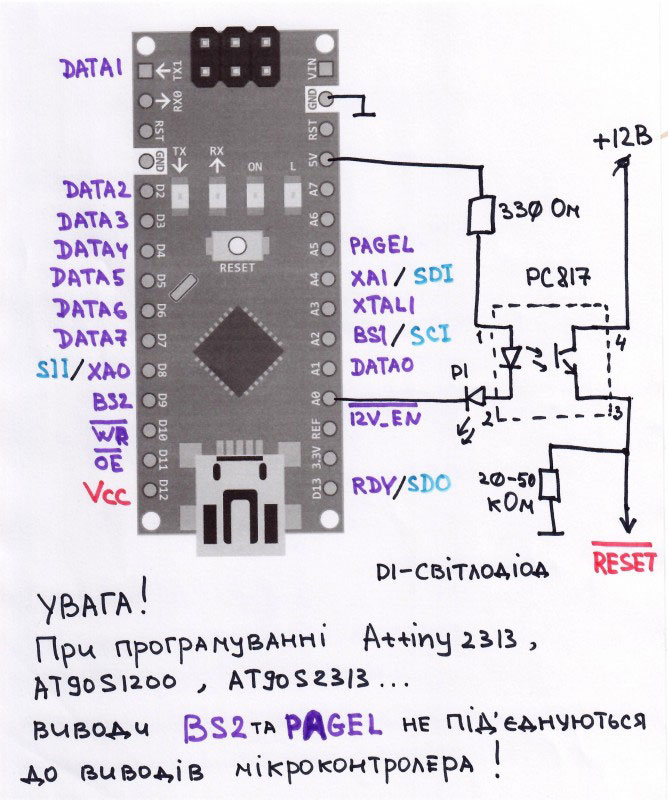 DATA1
TX1
RX0
RST
GND
DATA2 D2
DATA3 D3
DATA4 D4
DATA5 D5
DATA6 D6
DATA7 D7
SII/XA0 D8
BS2 D9
WR D10
OE D11
Vcc D12
TX RX ON L
RESET
VIN
GND
RST
5V
A7
A6
A5 PAGEL
A4 XA1/SDI
A3 XTAL1
A2 BS1/SCI
A1 DATA0
A0 12V_EN
REF
3.3V
D13 RDY/SDO
+12В
330 Ом
PC817
1
4
D1
2
3
20-50
кОм
RESET
D1-світлодіод
УВАГА!
При програмуванні Attiny2313,
AT90S1200, AT90S2313...
виводи BS2 та PAGEL не під'єднуються
до виводів мікроконтролера!